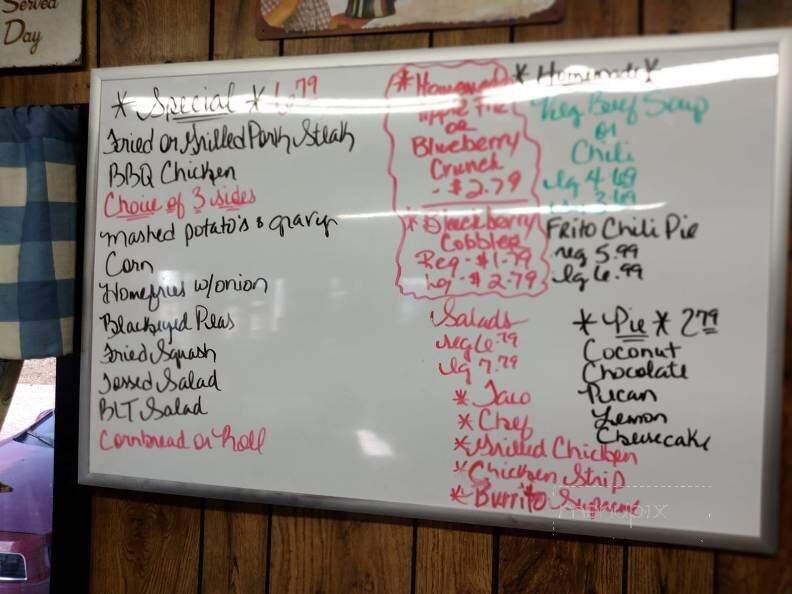 Served
Day
* Special * 6.79
Fried or Grilled Pork Steak
BBQ Chicken
Choice of 3 sides
mashed potato's & gravy
Corn
Homefries w/onion
Blackeyed Peas
Fried Squash
Tossed Salad
BLT Salad
Cornbread or Roll
* Homemade
Apple Pie
or
Blueberry
Crunch
- $2.79
* Blackberry
Cobbler
Reg - $1.79
Lg - $2.79
Salads
reg 6.79
lg 7.79
* Taco
* Chef
* Grilled Chicken
* Chicken Strip
* Burrito Supreme
* Homemade *
Veg Beef Soup
or
Chili
lg 4.69
3.69
Frito Chili Pie
reg 5.99
lg 6.99
* Pie * 2.79
Coconut
Chocolate
Pecan
Lemon
Cheesecake
menupix